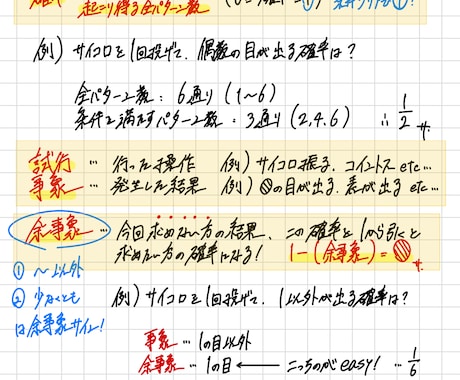 起こり得る全パターン数
例) サイコロを1回投げて、偶数の目が出る確率は?
全パターン数 : 6通り (1〜6)
条件を満たすパターン数 : 3通り (2,4,6) ∴ 1/2
試行 … 行った操作 例) サイコロ振る、コイントス etc…
事象 … 発生した結果 例) の目が出る、表が出る etc…
余事象 … 今回求めない方の結果、この確率を1から引くと
求めたい方の確率になる! 1-(余事象)=
① 〜以外
② 少なくとも
は余事象サイン!
例) サイコロを1回投げて、1以外が出る確率は?
事象 … 1の目以外
余事象 … 1の目 ← こっちのがeasy! … 1/6